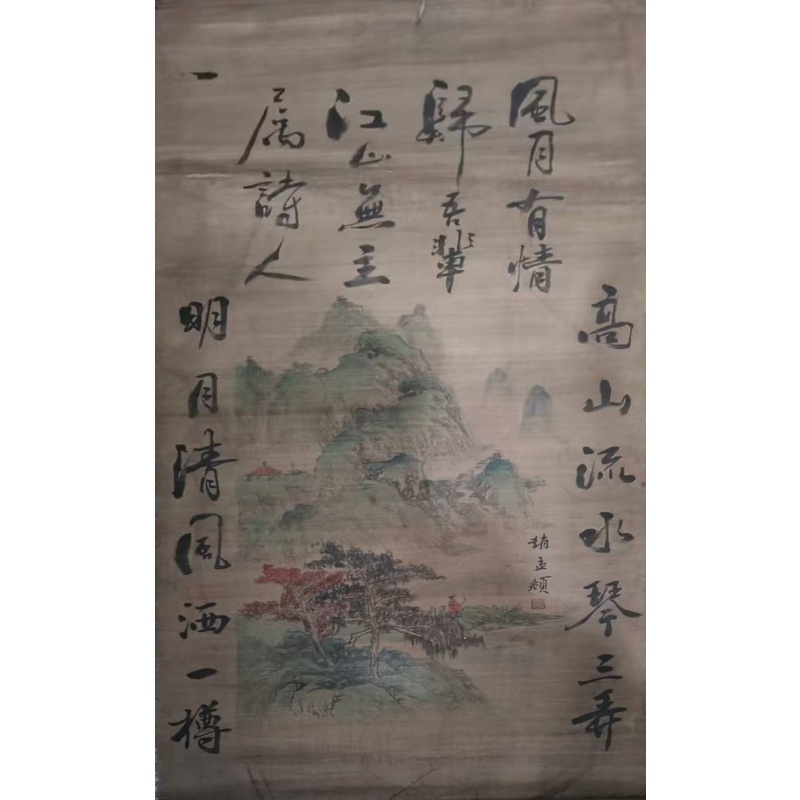 風月有情
歸吾輩
江山無主
属詩人
一
高山流水琴三弄
明月清風酒一樽
趙孟頫